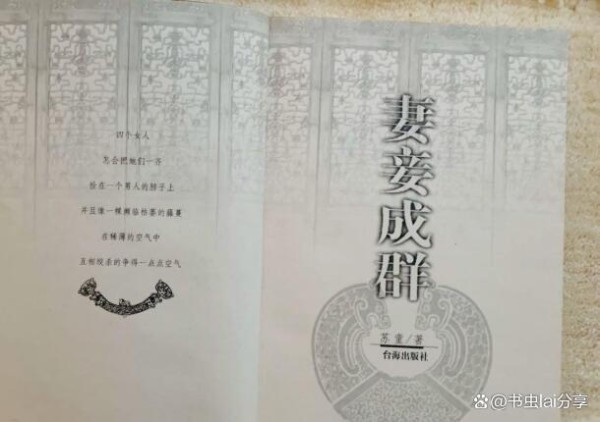 四个女人
怎会把她们一齐
拴在一个男人的脖子上
并且像一棵濒临枯萎的藤蔓
在稀薄的空气中
互相绞杀的争得一点点空气
妻妾成群
苏童/著
台海出版社
@书虫lai分享